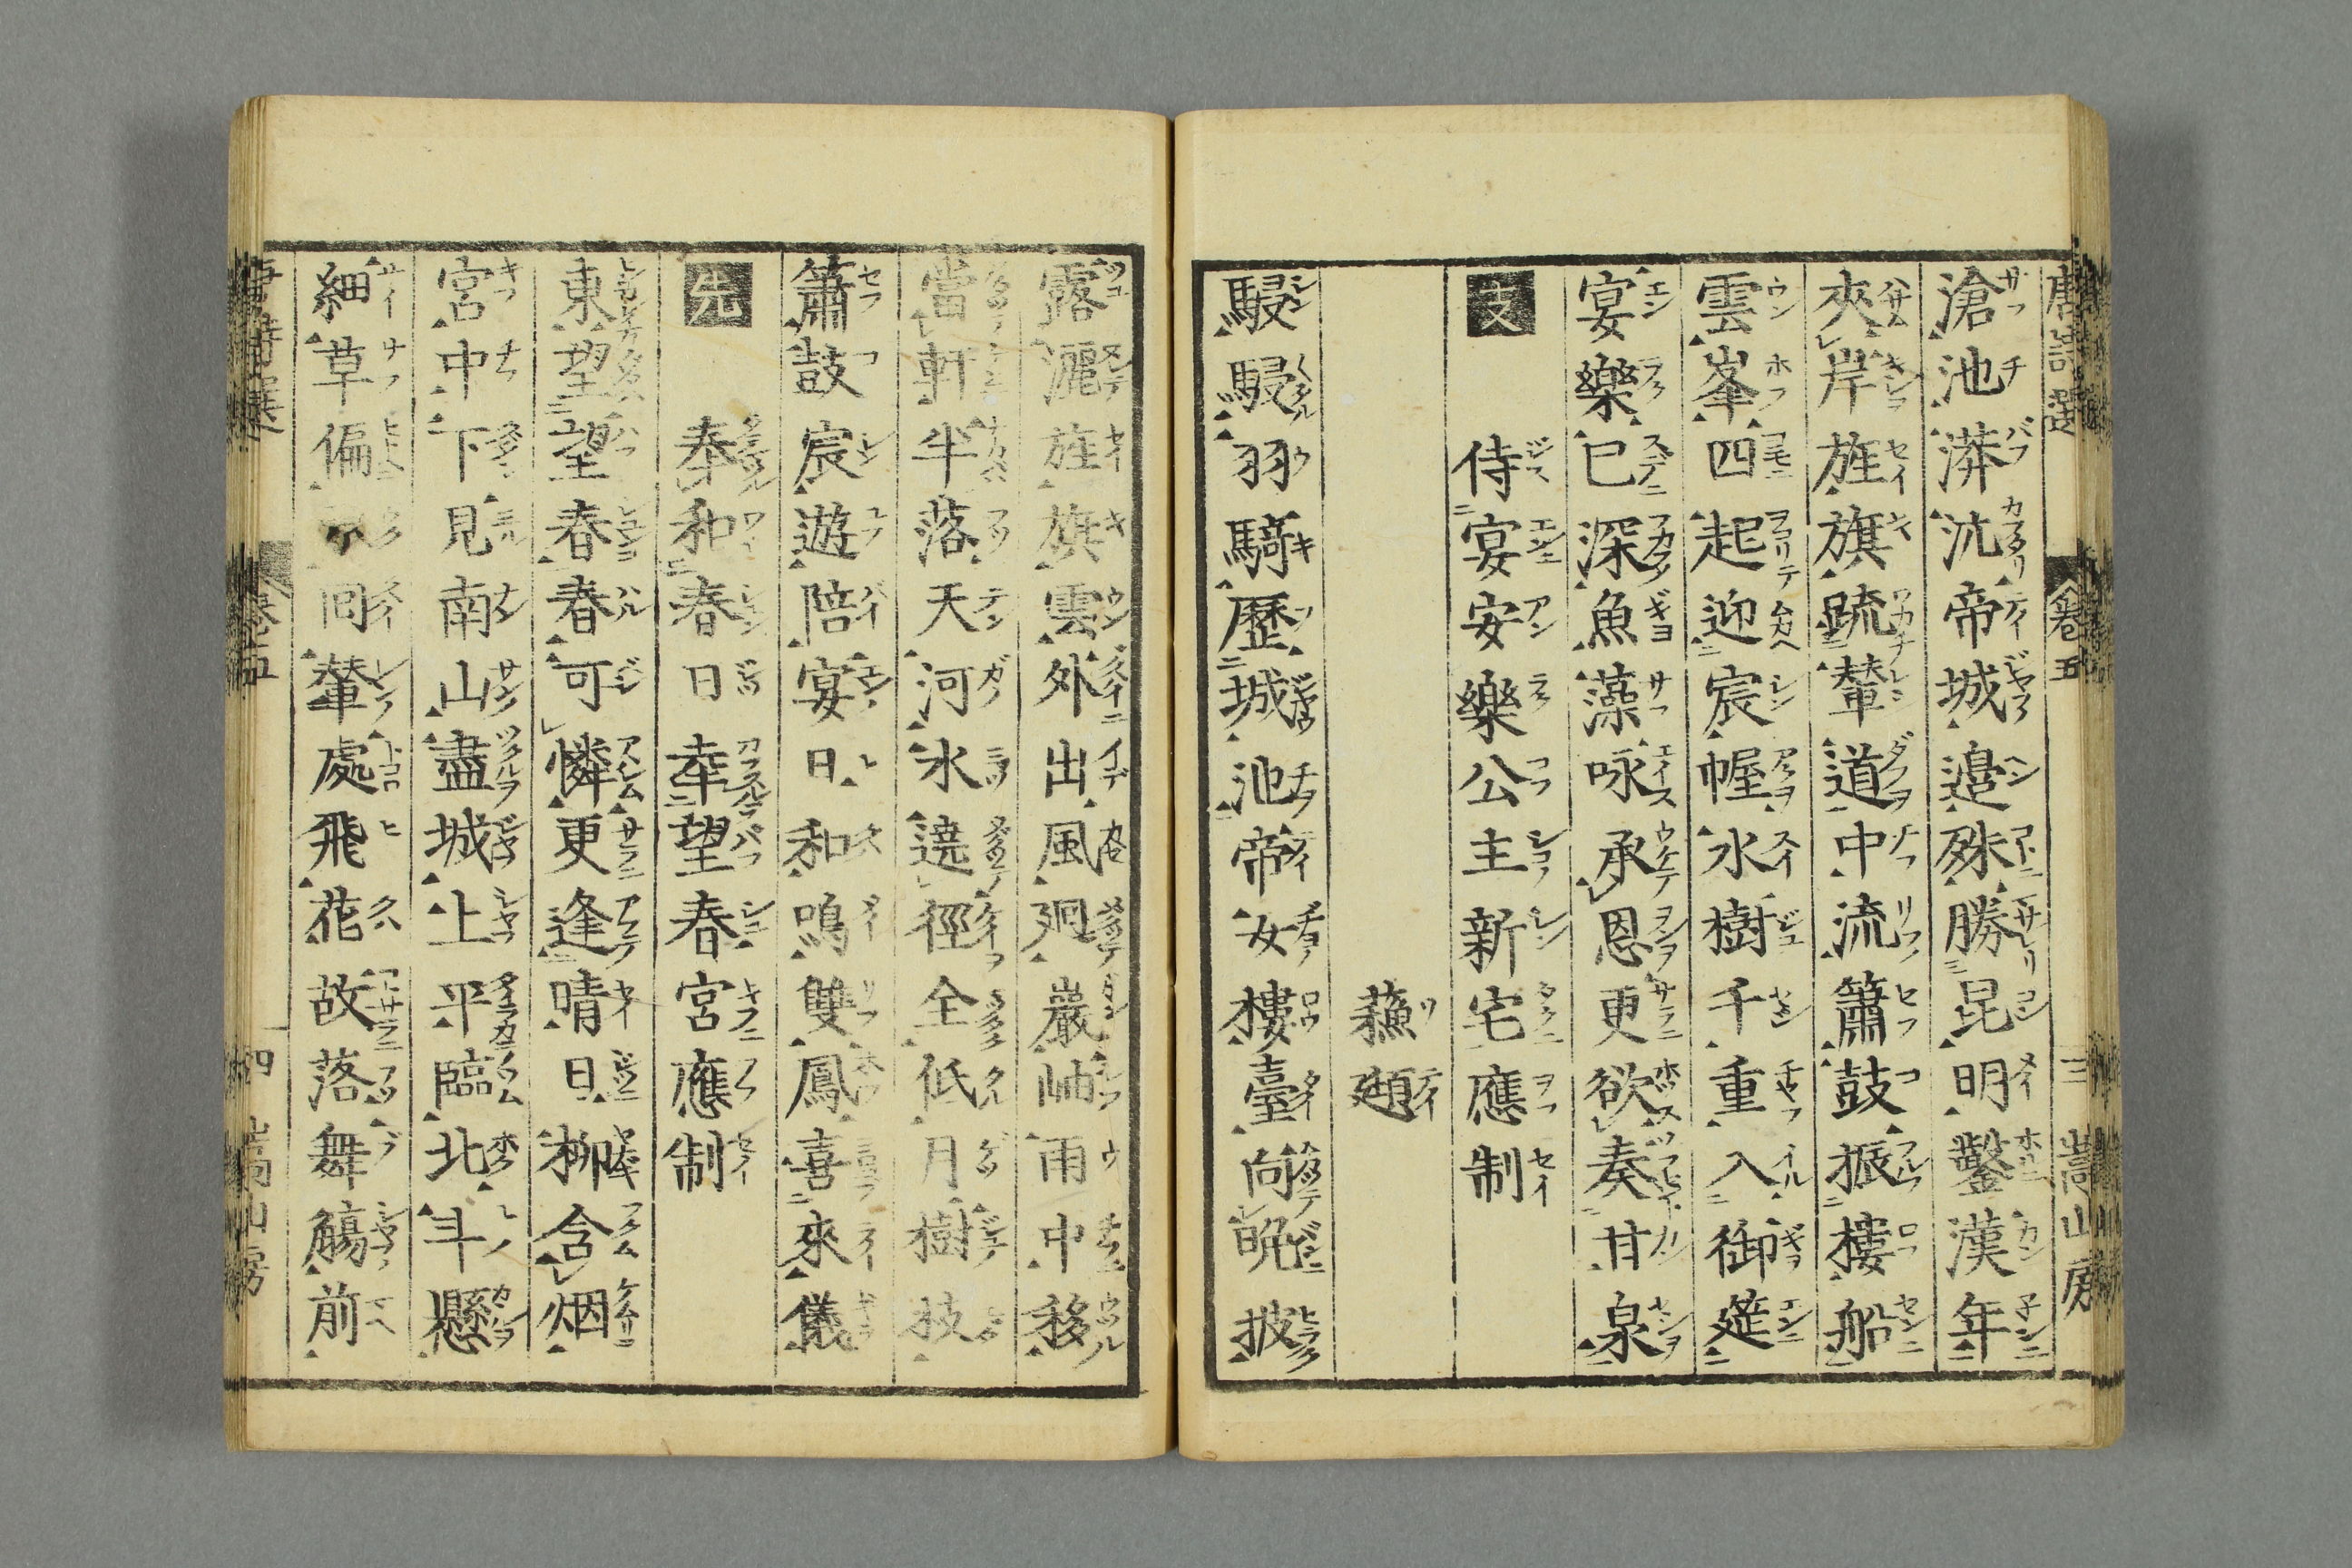 唐詩選 卷五 三 嵩山房
滄池漭沆帝城邉殊勝昆明鑿漢年
夾岸旌旗䟽輦道中流簫鼓振樓船
雲峯四起迎宸幄水樹千重入御筵
宴樂已深魚藻咏承恩更欲奏甘泉
支 侍宴安樂公主新宅應制
蘓頲
駸駸羽騎歷城池帝女樓臺向晩披
露灑旌旗雲外出風廻巖岫雨中移
當軒半落天河水遶徑全低月樹枝
簫鼓宸遊陪宴日和鳴雙鳳喜來儀
先 奉和春日幸望春宮應制
東望望春春可憐更逢晴日柳含烟
宮中下見南山盡城上平臨北斗懸
細草偏 囘輦處飛花故落舞觴前
唐詩選 卷五 四 嵩山房